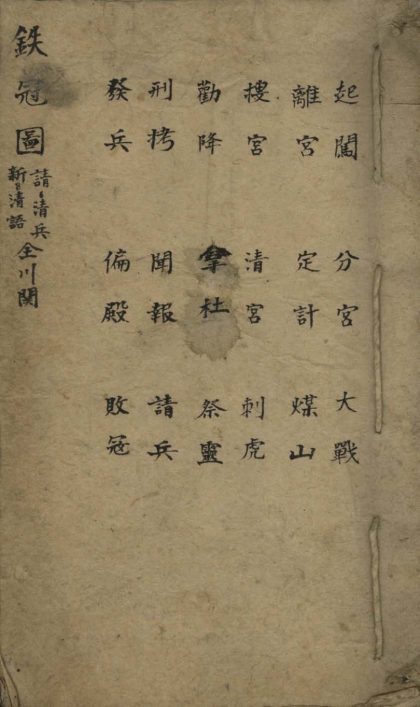 起闖 分宮 大戰
離宮 定計 煤山
搜宮 清宮 刺虎
勸降 拿杜 祭靈
刑拷 聞報 請兵
發兵 偏殿 敗冠
鉄冠圖
請〻清兵
新〻清語
全川関